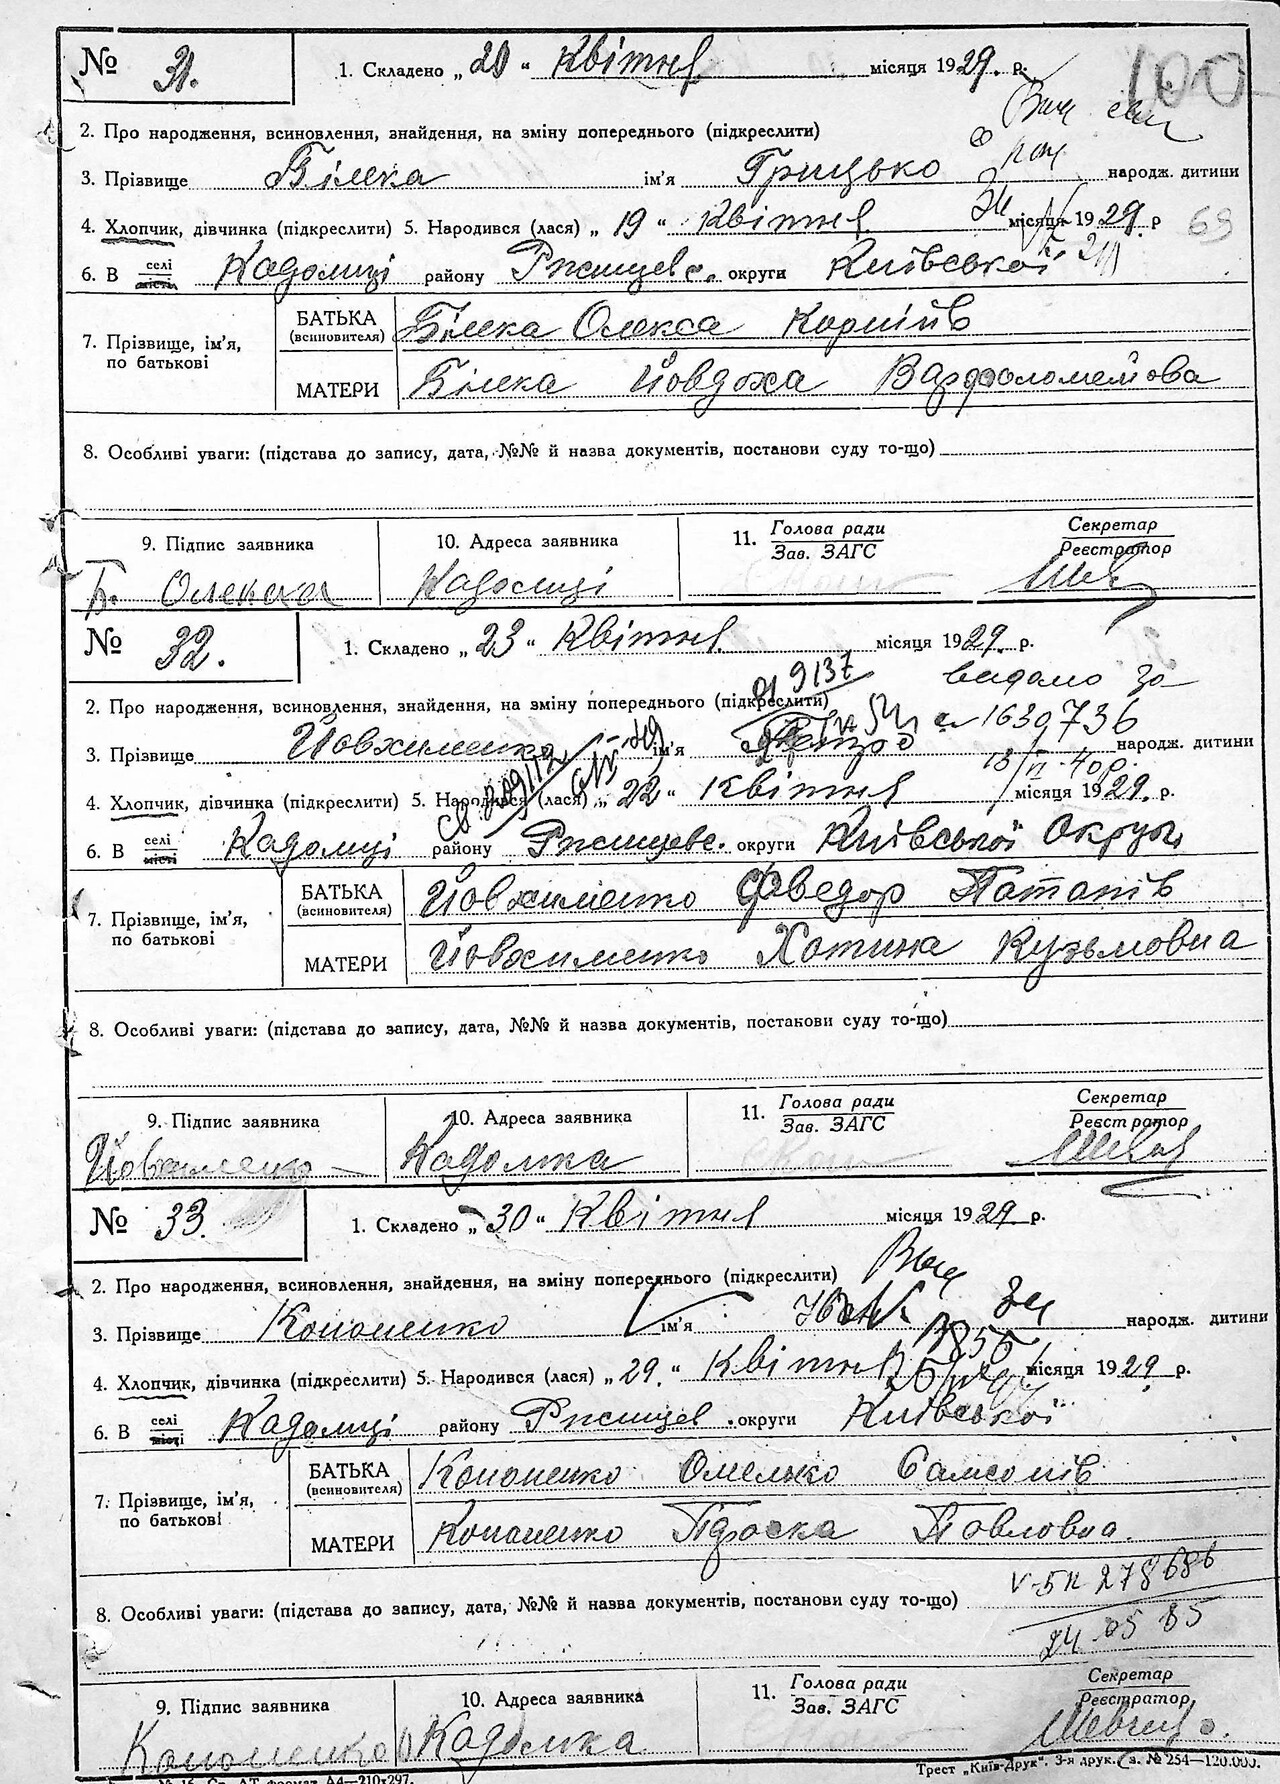 № 31. 1. Складено „ 20 “ Квітня місяця 1929. р. 100
2. Про народження, всиновлення, знайдення, на зміну попереднього (підкреслити)
3. Прізвище Білека ім'я Грицько народж. дитини
4. Хлопчик, дівчинка (підкреслити) 5. Народився (лася) „ 19 “ Квітня місяця 1929. р 69
6. В селі місті Кадомці району Ржищевс. округи Київської
7. Прізвище, ім'я, по батькові БАТЬКА (всиновителя) Білека Олекса Корніїв
МАТЕРИ Білека Йовдоха Вардоломеїова
8. Особливі уваги: (підстава до запису, дата, №№ й назва документів, постанови суду то-що)
9. Підпис заявника 10. Адреса заявника 11. Голова ради Зав. ЗАГС Секретар Реєстратор
Б. Олекса Кадомці
№ 32. 1. Складено „ 23 “ Квітня місяця 1929. р.
9137 видано за
2. Про народження, всиновлення, знайдення, на зміну попереднього (підкреслити)
1630736
3. Прізвище Йовхименко ім'я Петро народж. дитини
4. Хлопчик, дівчинка (підкреслити) 5. Народився (лася) „ 22 “ Квітня місяця 1929. р.
6. В селі місті Кадомці району Ржищевс. округи Київської Округи
7. Прізвище, ім'я, по батькові БАТЬКА (всиновителя) Йовхименко Фведор Потапів
МАТЕРИ Йовхименко Хотина Кузьмовна
8. Особливі уваги: (підстава до запису, дата, №№ й назва документів, постанови суду то-що)
9. Підпис заявника 10. Адреса заявника 11. Голова ради Зав. ЗАГС Секретар Реєстратор
Йовхименко Кадомка
№ 33. 1. Складено „ 30 “ Квітня місяця 1929 р.
2. Про народження, всиновлення, знайдення, на зміну попереднього (підкреслити)
3. Прізвище Кононенко ім'я Іван народж. дитини
4. Хлопчик, дівчинка (підкреслити) 5. Народився (лася) „ 29. “ Квітня місяця 1929 р.
6. В селі місті Кадомці району Ржищев. округи Київської
7. Прізвище, ім'я, по батькові БАТЬКА (всиновителя) Кононенко Омелько Самсонів
МАТЕРИ Кононенко Пдоска Повловна.
V-БК 278686
8. Особливі уваги: (підстава до запису, дата, №№ й назва документів, постанови суду то-що)
24 05 85
9. Підпис заявника 10. Адреса заявника 11. Голова ради Зав. ЗАГС Секретар Реєстратор
Кононенко Кадомка Шевченко.
Трест „Київ-Друк“. 3-я друк. З. № 254—120.000.
№ 15. Ст. АТ. формат А4—210×297.